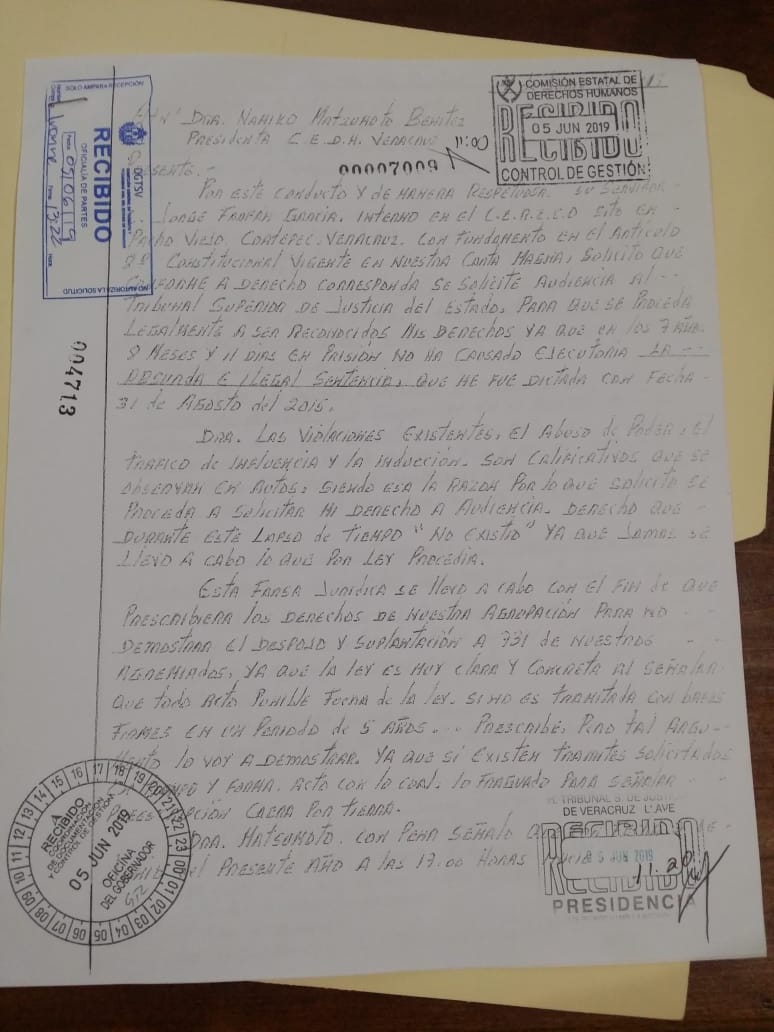 COMISIÓN ESTATAL DE
DERECHOS HUMANOS
RECIBIDO
05 JUN 2019
CONTROL DE GESTIÓN
11:00
00007009
SOLO AMPARA RECEPCIÓN
DGTSV
RECIBIDO
OFICIALIA DE PARTES
05/06/19
13:22
NO AUTORIZA LA SOLICITUD
004713
DRA. NAMIKO MATZUMOTO BENITEZ
PRESIDENTA C.E.D.H. VERACRUZ
PRESENTE.-
POR ESTE CONDUCTO Y DE MANERA RESPETUOSA. SU SERVIDOR
JORGE FAUFAN GARCIA. INTERNO EN EL C.E.R.E.S.O SITO EN
PACHO VIEJO, COATEPEC. VERACRUZ. CON FUNDAMENTO EN EL ARTICULO
8º CONSTITUCIONAL VIGENTE EN NUESTRA CARTA MAGNA; SOLICITO QUE
CONFORME A DERECHO CORRESPONDA SE SOLICITE AUDIENCIA AL
TRIBUNAL SUPERIOR DE JUSTICIA DEL ESTADO, PARA QUE SE PROCEDA
LEGALMENTE A SER RECONOCIDOS MIS DERECHOS YA QUE EN LOS 7 AÑOS
8 MESES Y 11 DIAS EN PRISIÓN NO HA CAUSADO EJECUTORIA LA
ABSURDA E ILEGAL SENTENCIA, QUE ME FUE DICTADA CON FECHA
31 DE AGOSTO DEL 2015.
DRA. LAS VIOLACIONES EXISTENTES, EL ABUSO DE PODER, EL
TRAFICO DE INFLUENCIA Y LA INDUCCIÓN. SON CALIFICATIVOS QUE SE
OBSERVAN EN AUTOS, SIENDO ESA LA RAZON POR LO QUE SOLICITO SE
PROCEDA A SOLICITAR MI DERECHO A AUDIENCIA. DERECHO QUE
DURANTE ESTE LAPSO DE TIEMPO "NO EXISTIO" YA QUE JAMAS SE
LLEVO A CABO LO QUE POR LEY PROCEDIA.
ESTA FARSA JURIDICA SE LLEVO A CABO CON EL FIN DE QUE
PRESCRIBIERA LOS DERECHOS DE NUESTRA AGRUPACIÓN PARA NO
DEMOSTRAR EL DESPOJO Y SUPLANTACIÓN A 731 DE NUESTROS
AGREMIADOS, YA QUE LA LEY ES MUY CLARA Y CONCRETA AL SEÑALAR
QUE TODO ACTO PUNIBLE FUERA DE LA LEY. SI NO ES TRAMITADA CON BASES
FIRMES EN UN PERIODO DE 5 AÑOS... PRESCRIBE, PERO TAL ARGU-
MENTO LO VOY A DEMOSTRAR. YA QUE SI EXISTEN TRAMITES SOLICITADOS
EN TIEMPO Y FORMA. ACTO CON LO CUAL. LO FRAGUADO PARA SEÑALAR
PRESCRIPCIÓN CAERA POR TIERRA.
DRA. MATSUMOTO. CON PENA SEÑALO
DEL PRESENTE AÑO A LAS 17:00 HORAS
RECIBIDO
COORDINACIÓN
DE DOCUMENTACIÓN
Y CONTROL DE GESTIÓN
05 JUN 2019
OFICINA
DEL GOBERNADOR
H. TRIBUNAL S. DE JUSTICIA
DE VERACRUZ LLAVE
RECIBIDO
05 JUN 2019
11:20
PRESIDENCIA